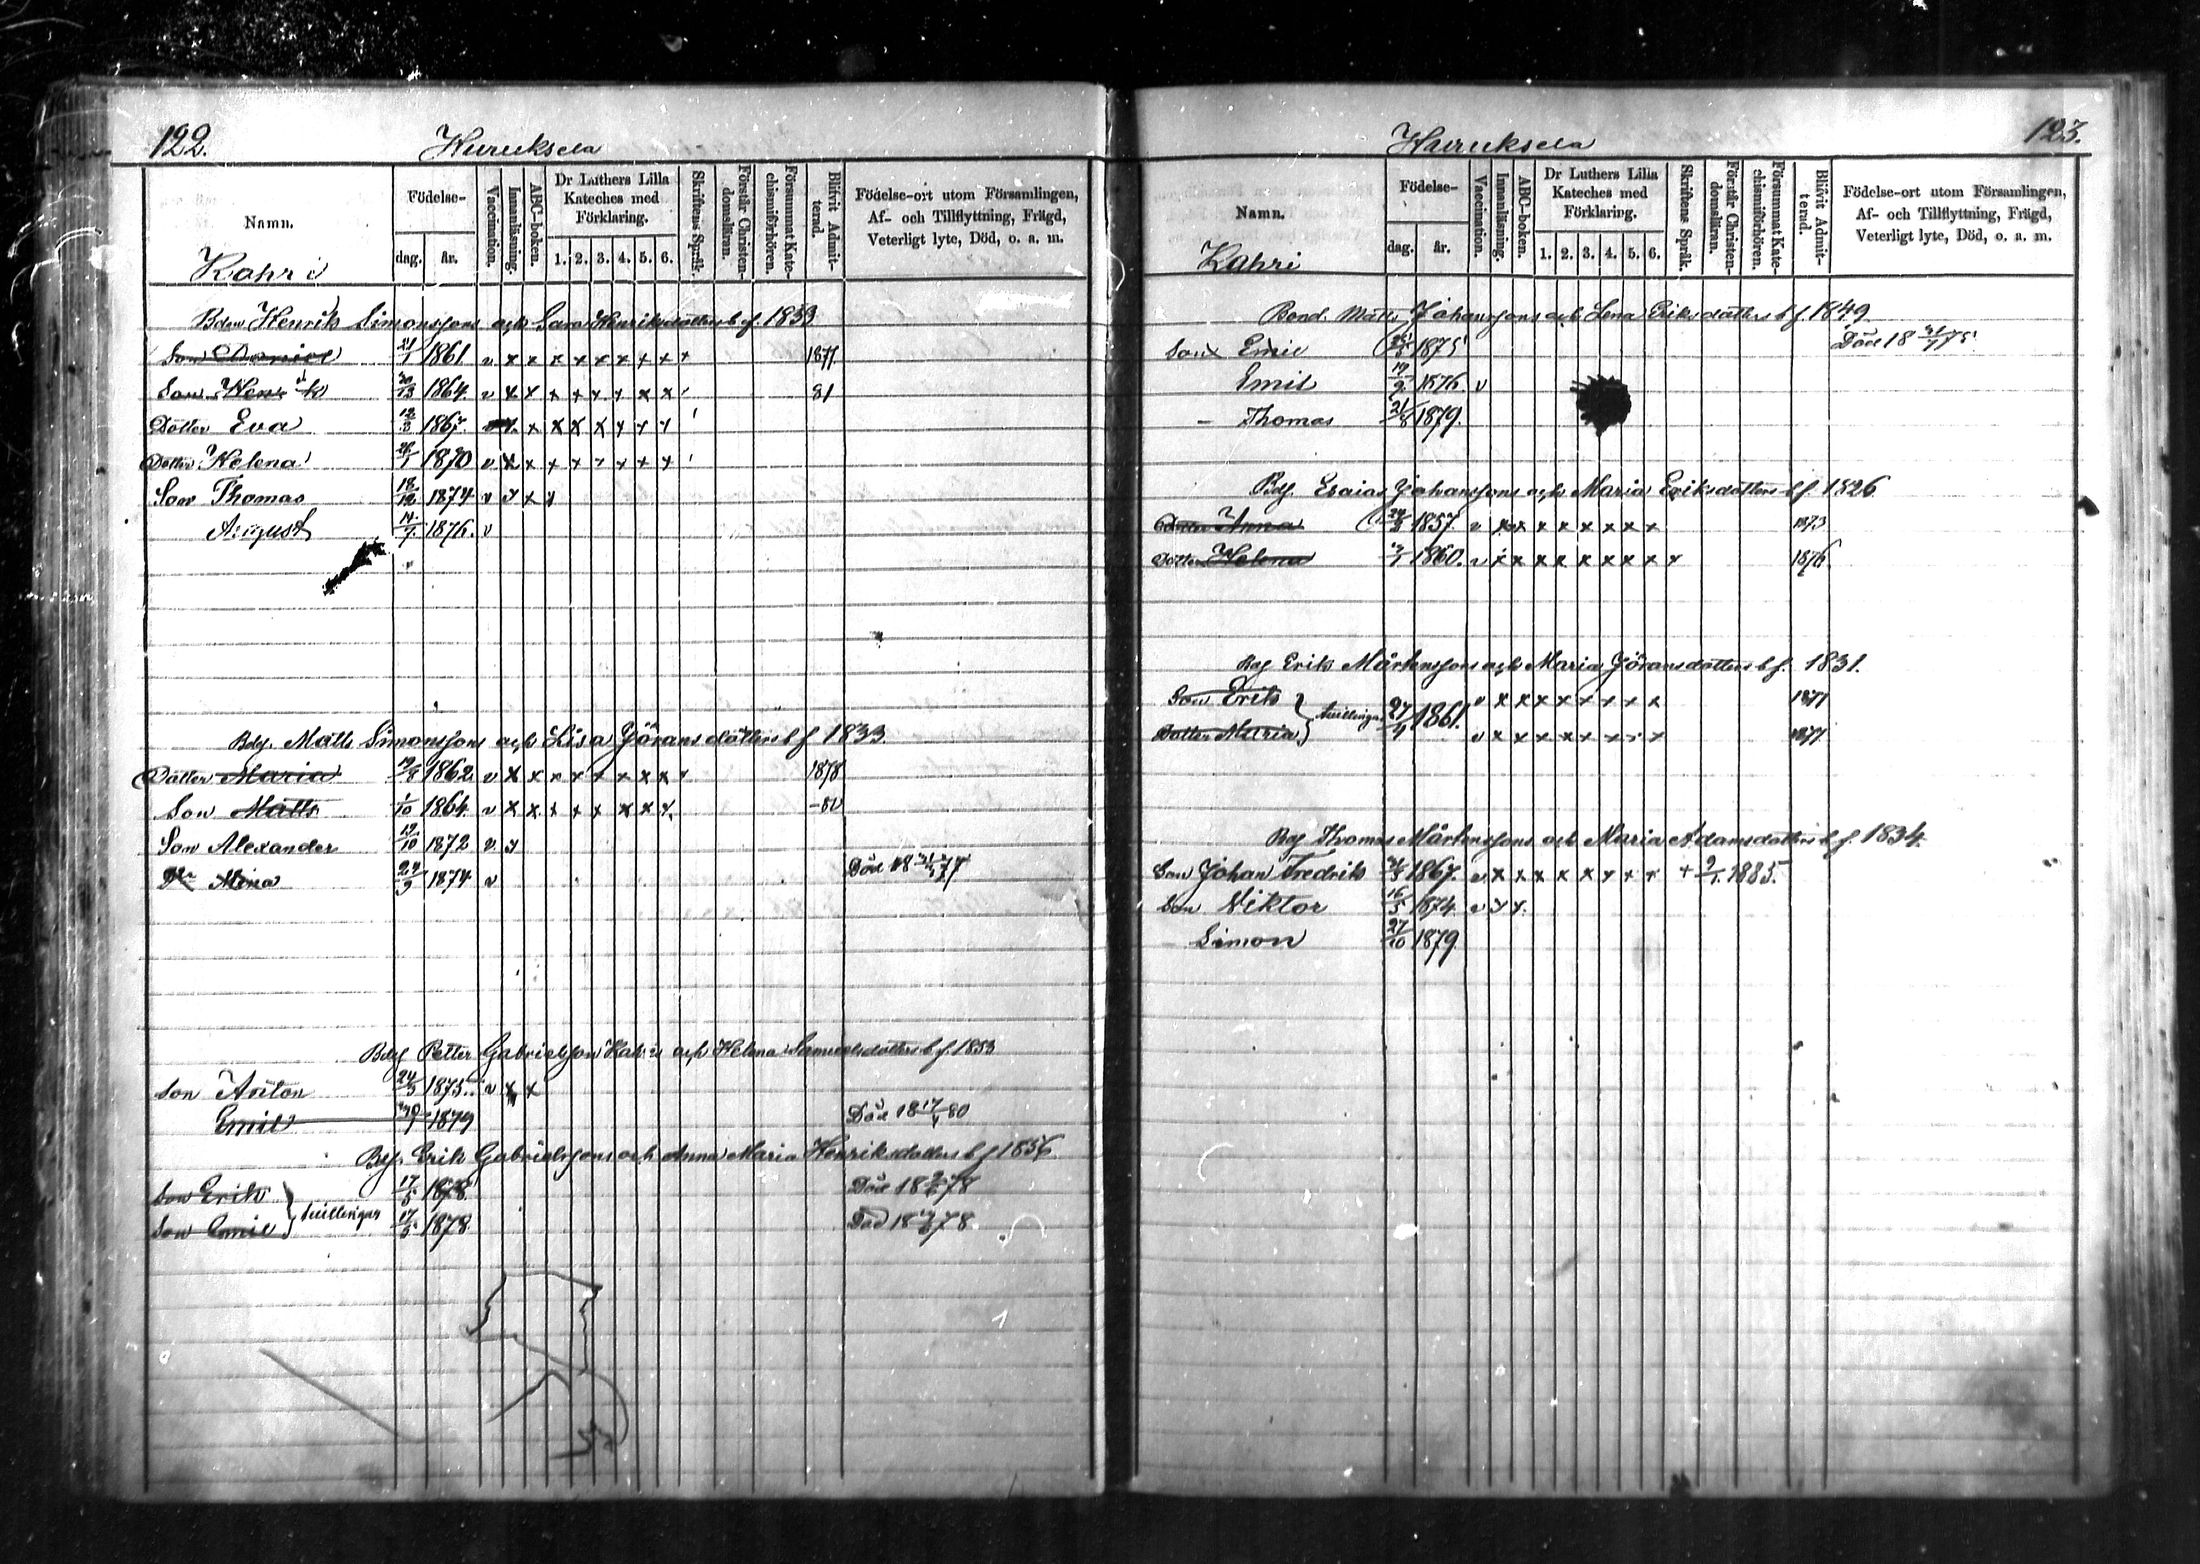 122.
Huruksela
Namn.
Födelse-
dag.
år.
Vaccination.
Innanläsning.
ABC-boken.
Dr Luthers Lilla Kateches med Förklaring.
1. 2. 3. 4. 5. 6.
Skriftens Språk.
Förstår Christendomsläran.
Försummat Katechismiförhören.
Blifvit Admitterad.
Födelse-ort utom Församlingen,
Af- och Tillflyttning, Frägd,
Veterligt lyte, Död, o. a. m.
Kahri
Henrik Simonssons och Sara Henriksdotters b f. 1833
Son Daniel 1861 v x x x x x x x x x 1877
Son Henrik 1864 v x x x x x x x x 81
Dotter Eva 1867 x x x x x x x
Dotter Helena 1870 v x x x x x x x x
Son Thomas 18/12 1874 v x x x
August 14/7 1876. v
Matts Simonssons och Lisa Göransdotters b f 1833.
Dotter Maria 1862 v x x x x x x x x x 1878
Son Matts 1/10 1864. v x x x x x x x x
Son Alexander 1872 v x
Mina 1874 v Död 18 77
Petter Gabrielsson Kahri och Helena Samuelsdotters b f. 1853
Son Anton 24/3 1875. v x x
Emil 1879 Död 18 17/4 80
Erik Gabrielssons och Anna Maria Henriksdotters b f 1856
Son Erik 17/5 1878 Död 18 78
tvillingar
Son Emil 17/5 1878 Död 18 78
Huruksela
123.
Namn.
Födelse-
dag.
år.
Vaccination.
Innanläsning.
ABC-boken.
Dr Luthers Lilla Kateches med Förklaring.
1. 2. 3. 4. 5. 6.
Skriftens Språk.
Förstår Christendomsläran.
Försummat Katechismiförhören.
Blifvit Admitterad.
Födelse-ort utom Församlingen,
Af- och Tillflyttning, Frägd,
Veterligt lyte, Död, o. a. m.
Kahri
Matts Johanssons och Lena Eriksdotters b f 1849
Son Emil 1875 Död 18 75
Emil 1876 v
- Thomas 21/8 1879.
Esaias Johanssons och Maria Eriksdotters b f. 1826
Dotter Anna 1857 v x x x x x x x x 1873
Dotter Helena 1860. v x x x x x x x x x 1876
Erik Mårtenssons och Maria Göransdotters b f. 1831.
Son Erik v x x x x x x x x 1877
tvillingar 1861.
Dotter Maria v x x x x x x x x 1877
Thomas Mårtenssons och Maria Adamsdotters b f. 1834.
Son Johan Fredrik 1867. v x x x x x x x x + 2/1. 1885.
Son Viktor 16/5 1874 v x x.
Simon 27/10 1879